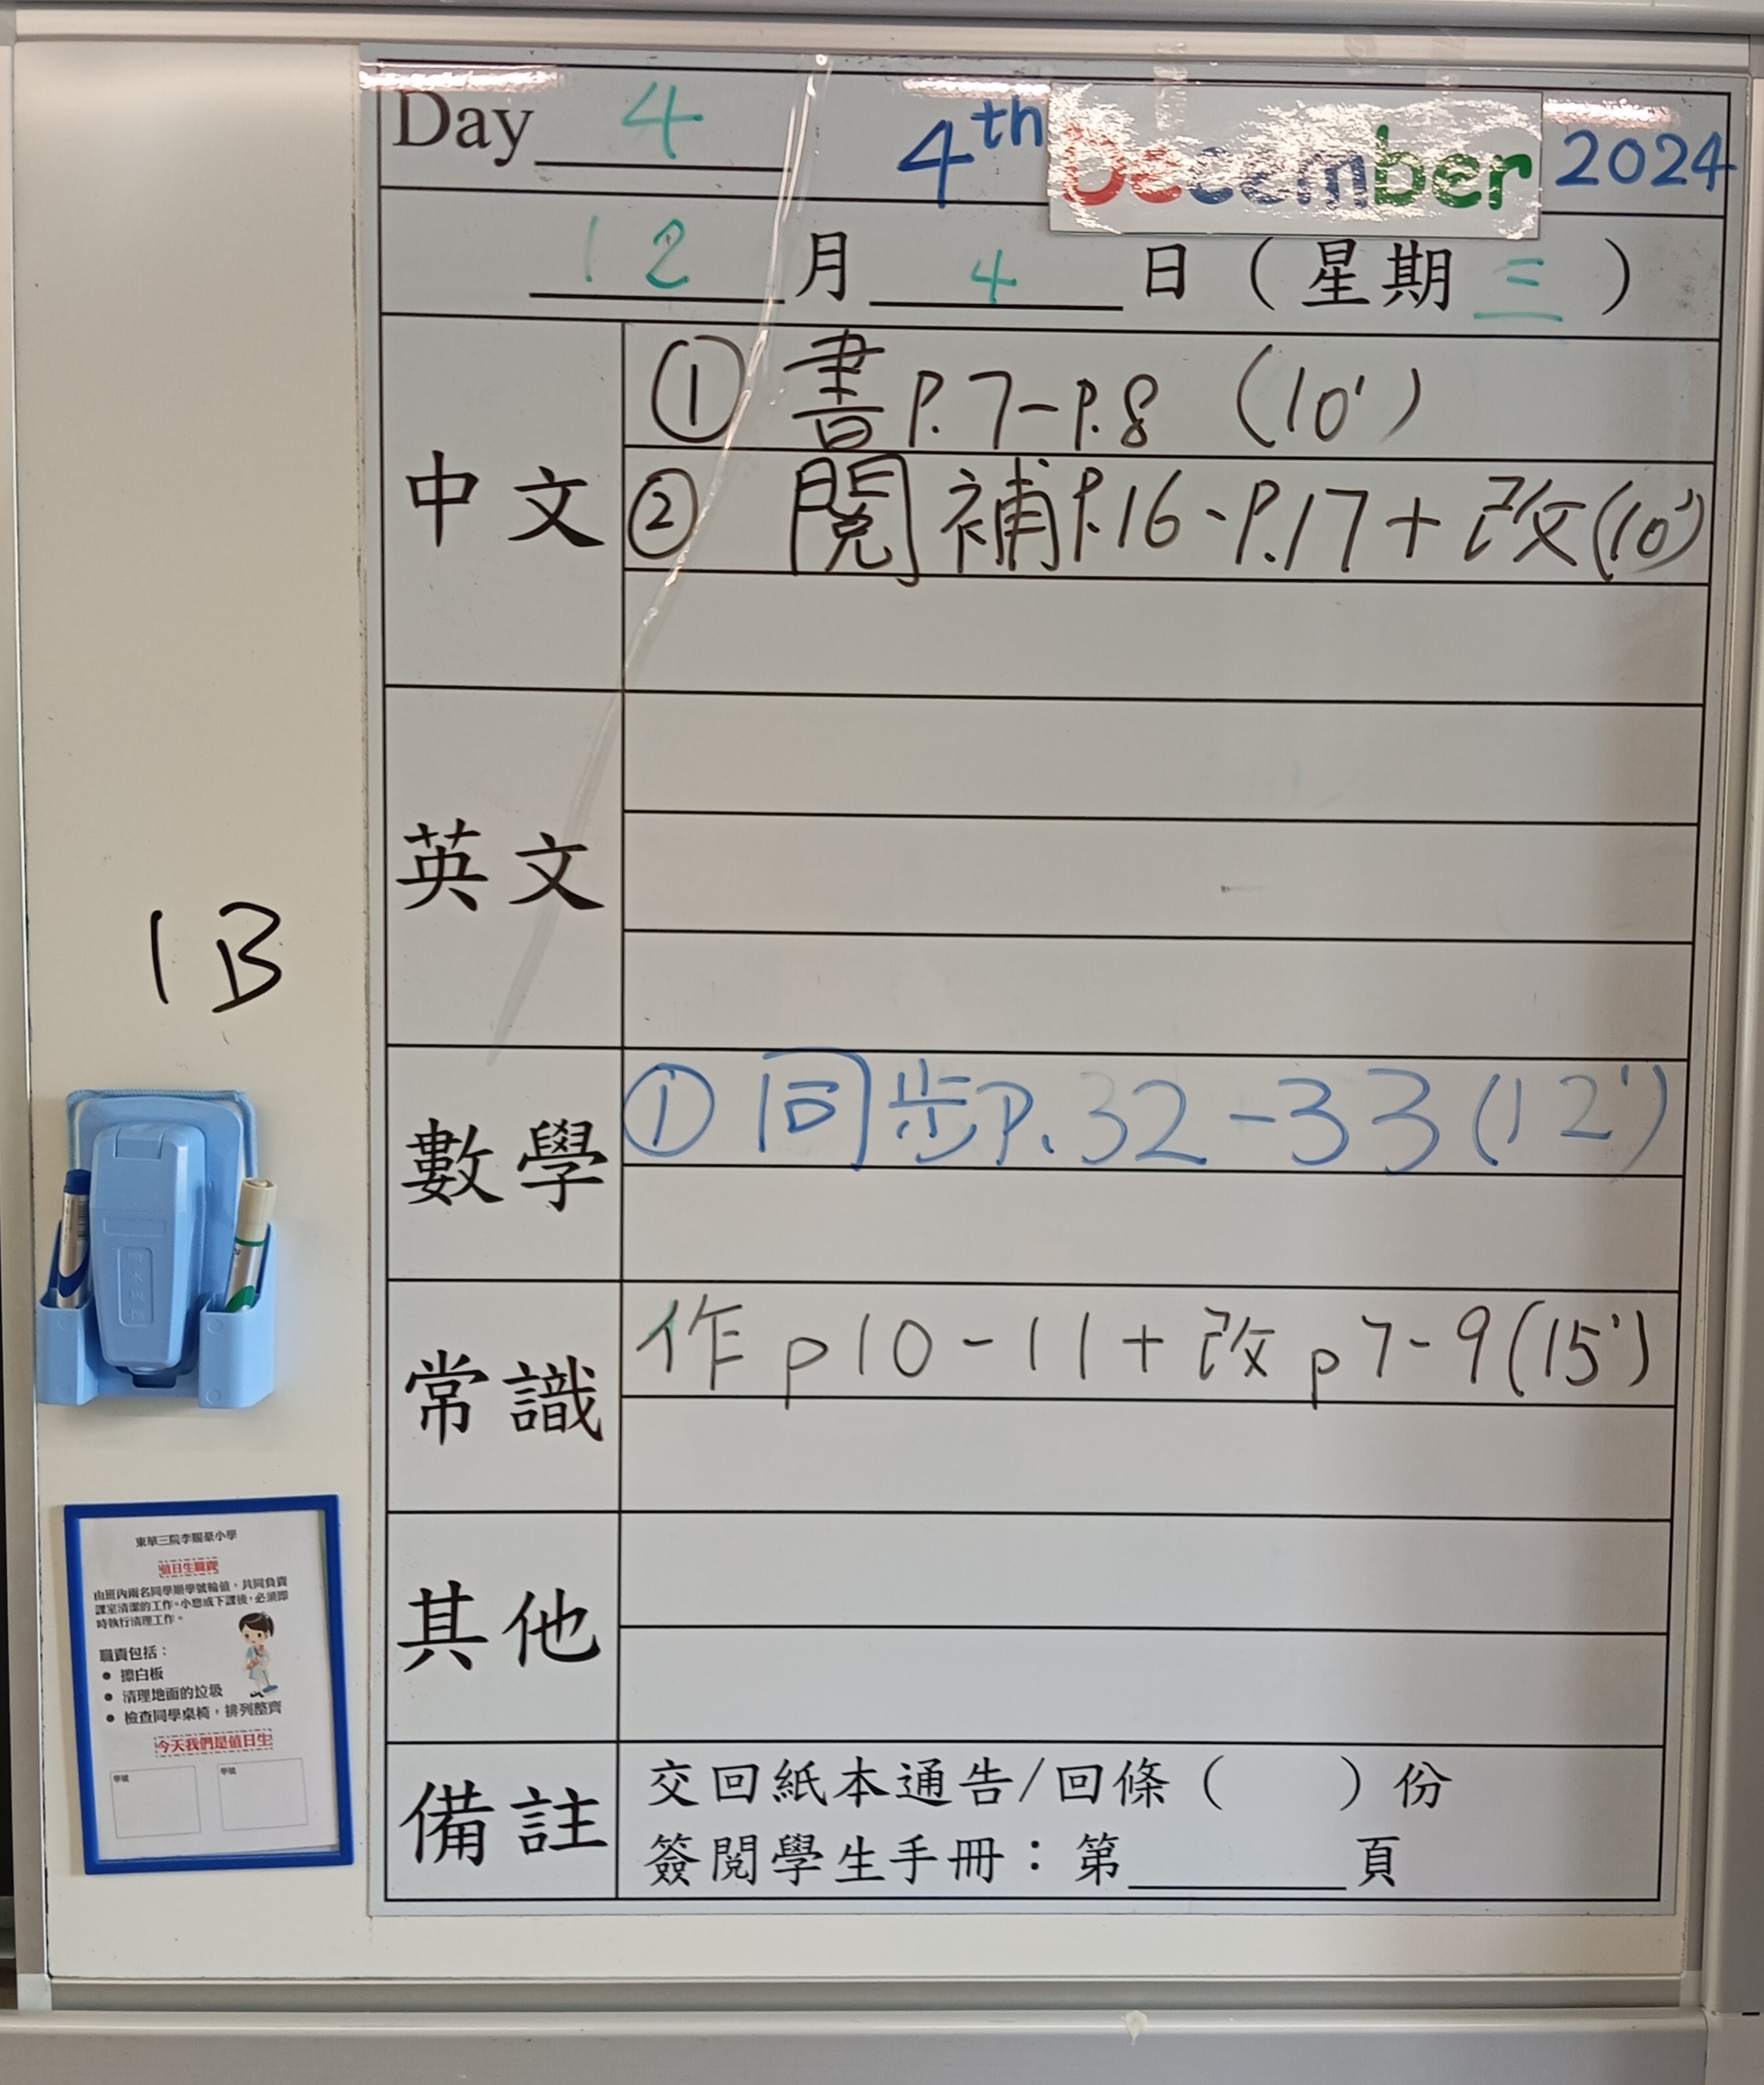 Day 4 4th December 2024
12月4日（星期三）
中文
① 書P.7-P.8 (10')
② 閱補P.16-P.17+改(10')
英文
數學
① 同步P.32-33(12')
常識
作p10-11+改p7-9(15')
其他
備註
交回紙本通告/回條（　　）份
簽閱學生手冊：第______頁
1B
東華三院李賜豪小學
值日生職責
由班內兩名同學順學號輪值，共同負責
課室清潔的工作。小息或下課後，必須即
時執行清理工作。
職責包括：
● 擦白板
● 清理地面的垃圾
● 檢查同學桌椅，排列整齊
今天我們是值日生
學號 學號